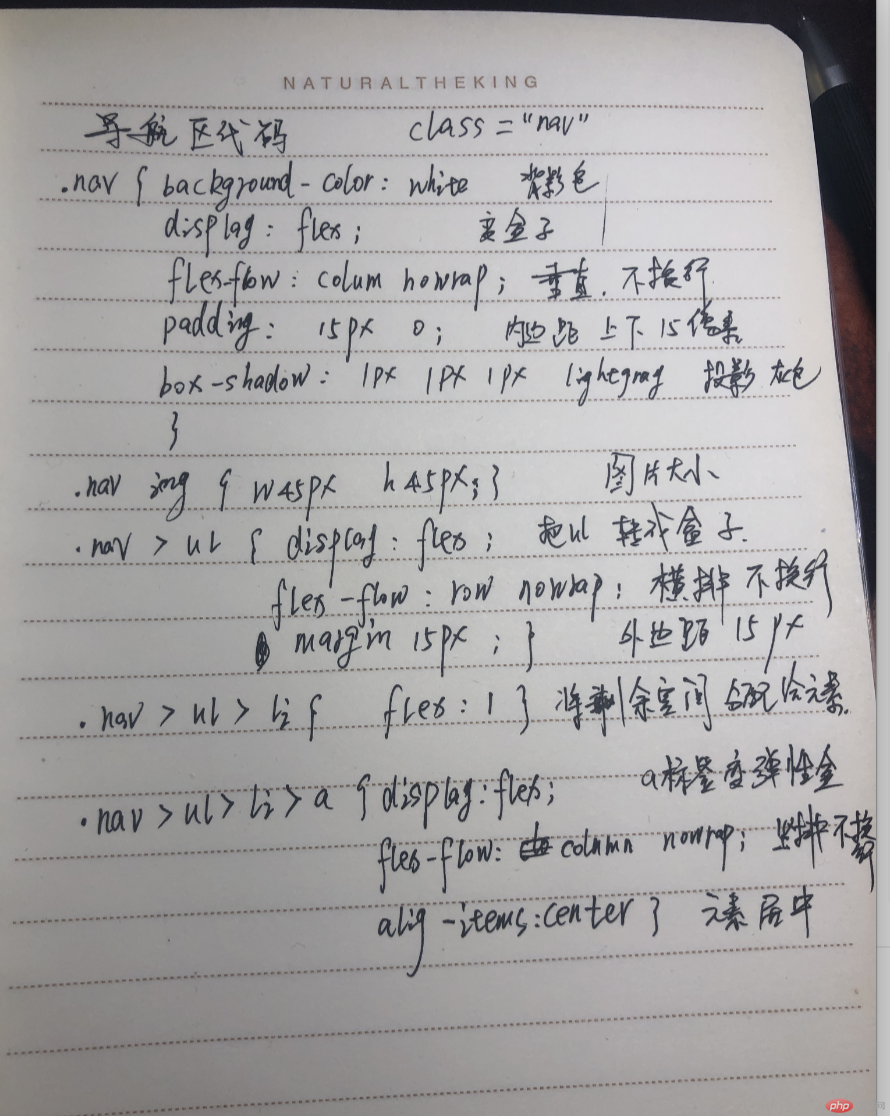 NATURALTHEKING
导航区代码 class="nav"
.nav { background-color: white 背影色
display: flex; 变盒子
flex-flow: colum nowrap; 垂直. 不换行
padding: 15px 0; 内边距 上下 15像素
box-shadow: 1px 1px 1px lightgray 投影 灰色
}
.nav img { w45px h45px;} 图片大小
.nav > ul { display: flex; 把ul 转成盒子.
flex-flow: row nowrap; 横排 不换行
margin 15px ; } 外边距 15px
.nav > ul > li { flex: 1 } 将剩余空间 分配给元素.
.nav > ul > li > a { display: flex; a标签变弹性盒
flex-flow: column nowrap; 竖排不换行
alig-items:center } 元素居中
php